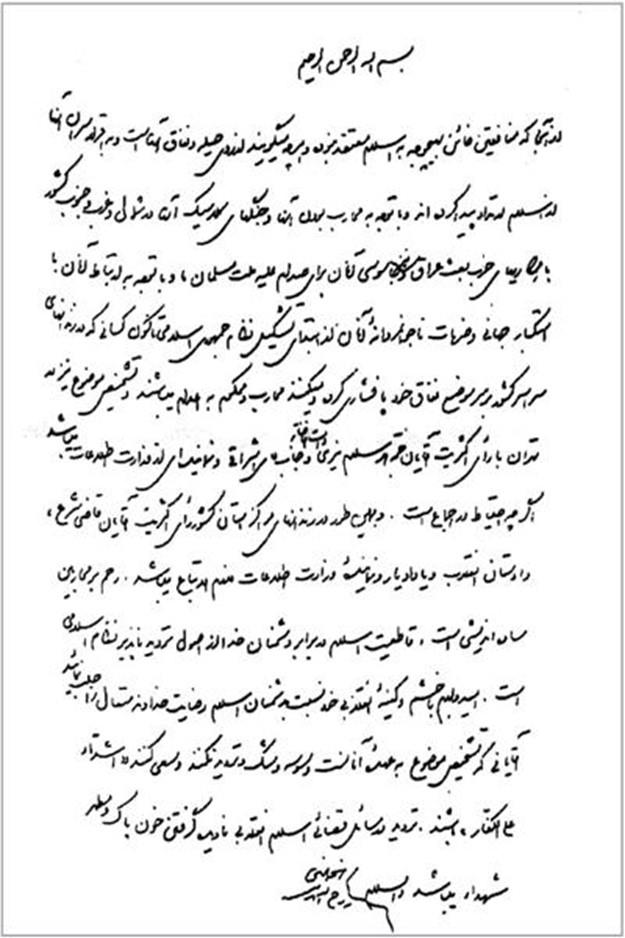 بسم الله الرحمن الرحیم
از آنجا که منافقین خائن بهیچوجه به اسلام معتقد نبوده و هرچه میگویند از روی حیله و نفاق آنهاست و به اقرار سران آنها
از اسلام ارتداد پیدا کرده‌اند و با توجه به محارب بودن آنها و جنگهای کلاسیک آنها در شمال و غرب و جنوب کشور
با همکاریهای حزب بعث عراق و نیز جاسوسی آنان برای صدام علیه ملت مسلمان ما و با توجه به ارتباط آنان با
استکبار جهانی و ضربات ناجوانمردانهٔ آنان از ابتدای تشکیل نظام جمهوری اسلامی تا کنون کسانی که در زندانهای
سراسر کشور بر سر موضع نفاق خود پافشاری کرده و میکنند محارب و محکوم به اعدام میباشند و تشخیص موضوع نیز در
تهران با رأی اکثریت آقایان حجة الاسلام نیری دامت افاضاته و جناب آقای اشراقی و نماینده‌ای از وزارت اطلاعات میباشد
اگر چه احتیاط در اجماع است . و همین طور در زندانهای مراکز استان کشور رأی اکثریت آقایان قاضی شرع ،
دادستان انقلاب و یا دادیار و نمایندهٔ وزارت اطلاعات لازم الاتباع میباشد . رحم بر محاربین
ساده اندیشی است ، قاطعیت اسلام در برابر دشمنان خدا از اصول تردید ناپذیر نظام اسلامی
است . امیدوارم با خشم و کینهٔ انقلابی خود نسبت به دشمنان اسلام رضایت خداوند متعال را جلب نمائید
آقایانی که تشخیص موضوع به عهدهٔ آنانست وسوسه و شک و تردید نکنند و سعی کنند « اشداء
علی الکفار » باشند . تردید در مسائل قضائی اسلام انقلابی نادیده گرفتن خون پاک و مطهر
شهداء میباشد والسلام
روح الله الموسوی الخمینی